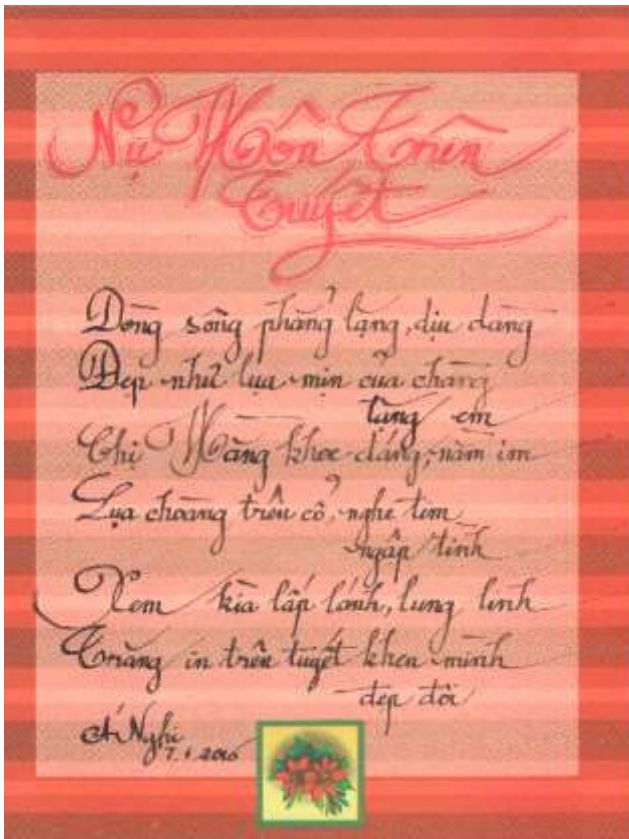 Nụ Hôn Trên
Tuyết
Dòng sông phẳng lặng, dịu dàng
Đẹp như lụa mịn của chàng
tặng em
Chị Hằng khoe dáng, nằm im
Lụa choàng trên cổ, nghe tim
ngập tình
Xem kìa lấp lánh, lung linh
Trăng in trên tuyết khen mình
đẹp đôi
Á Nghi